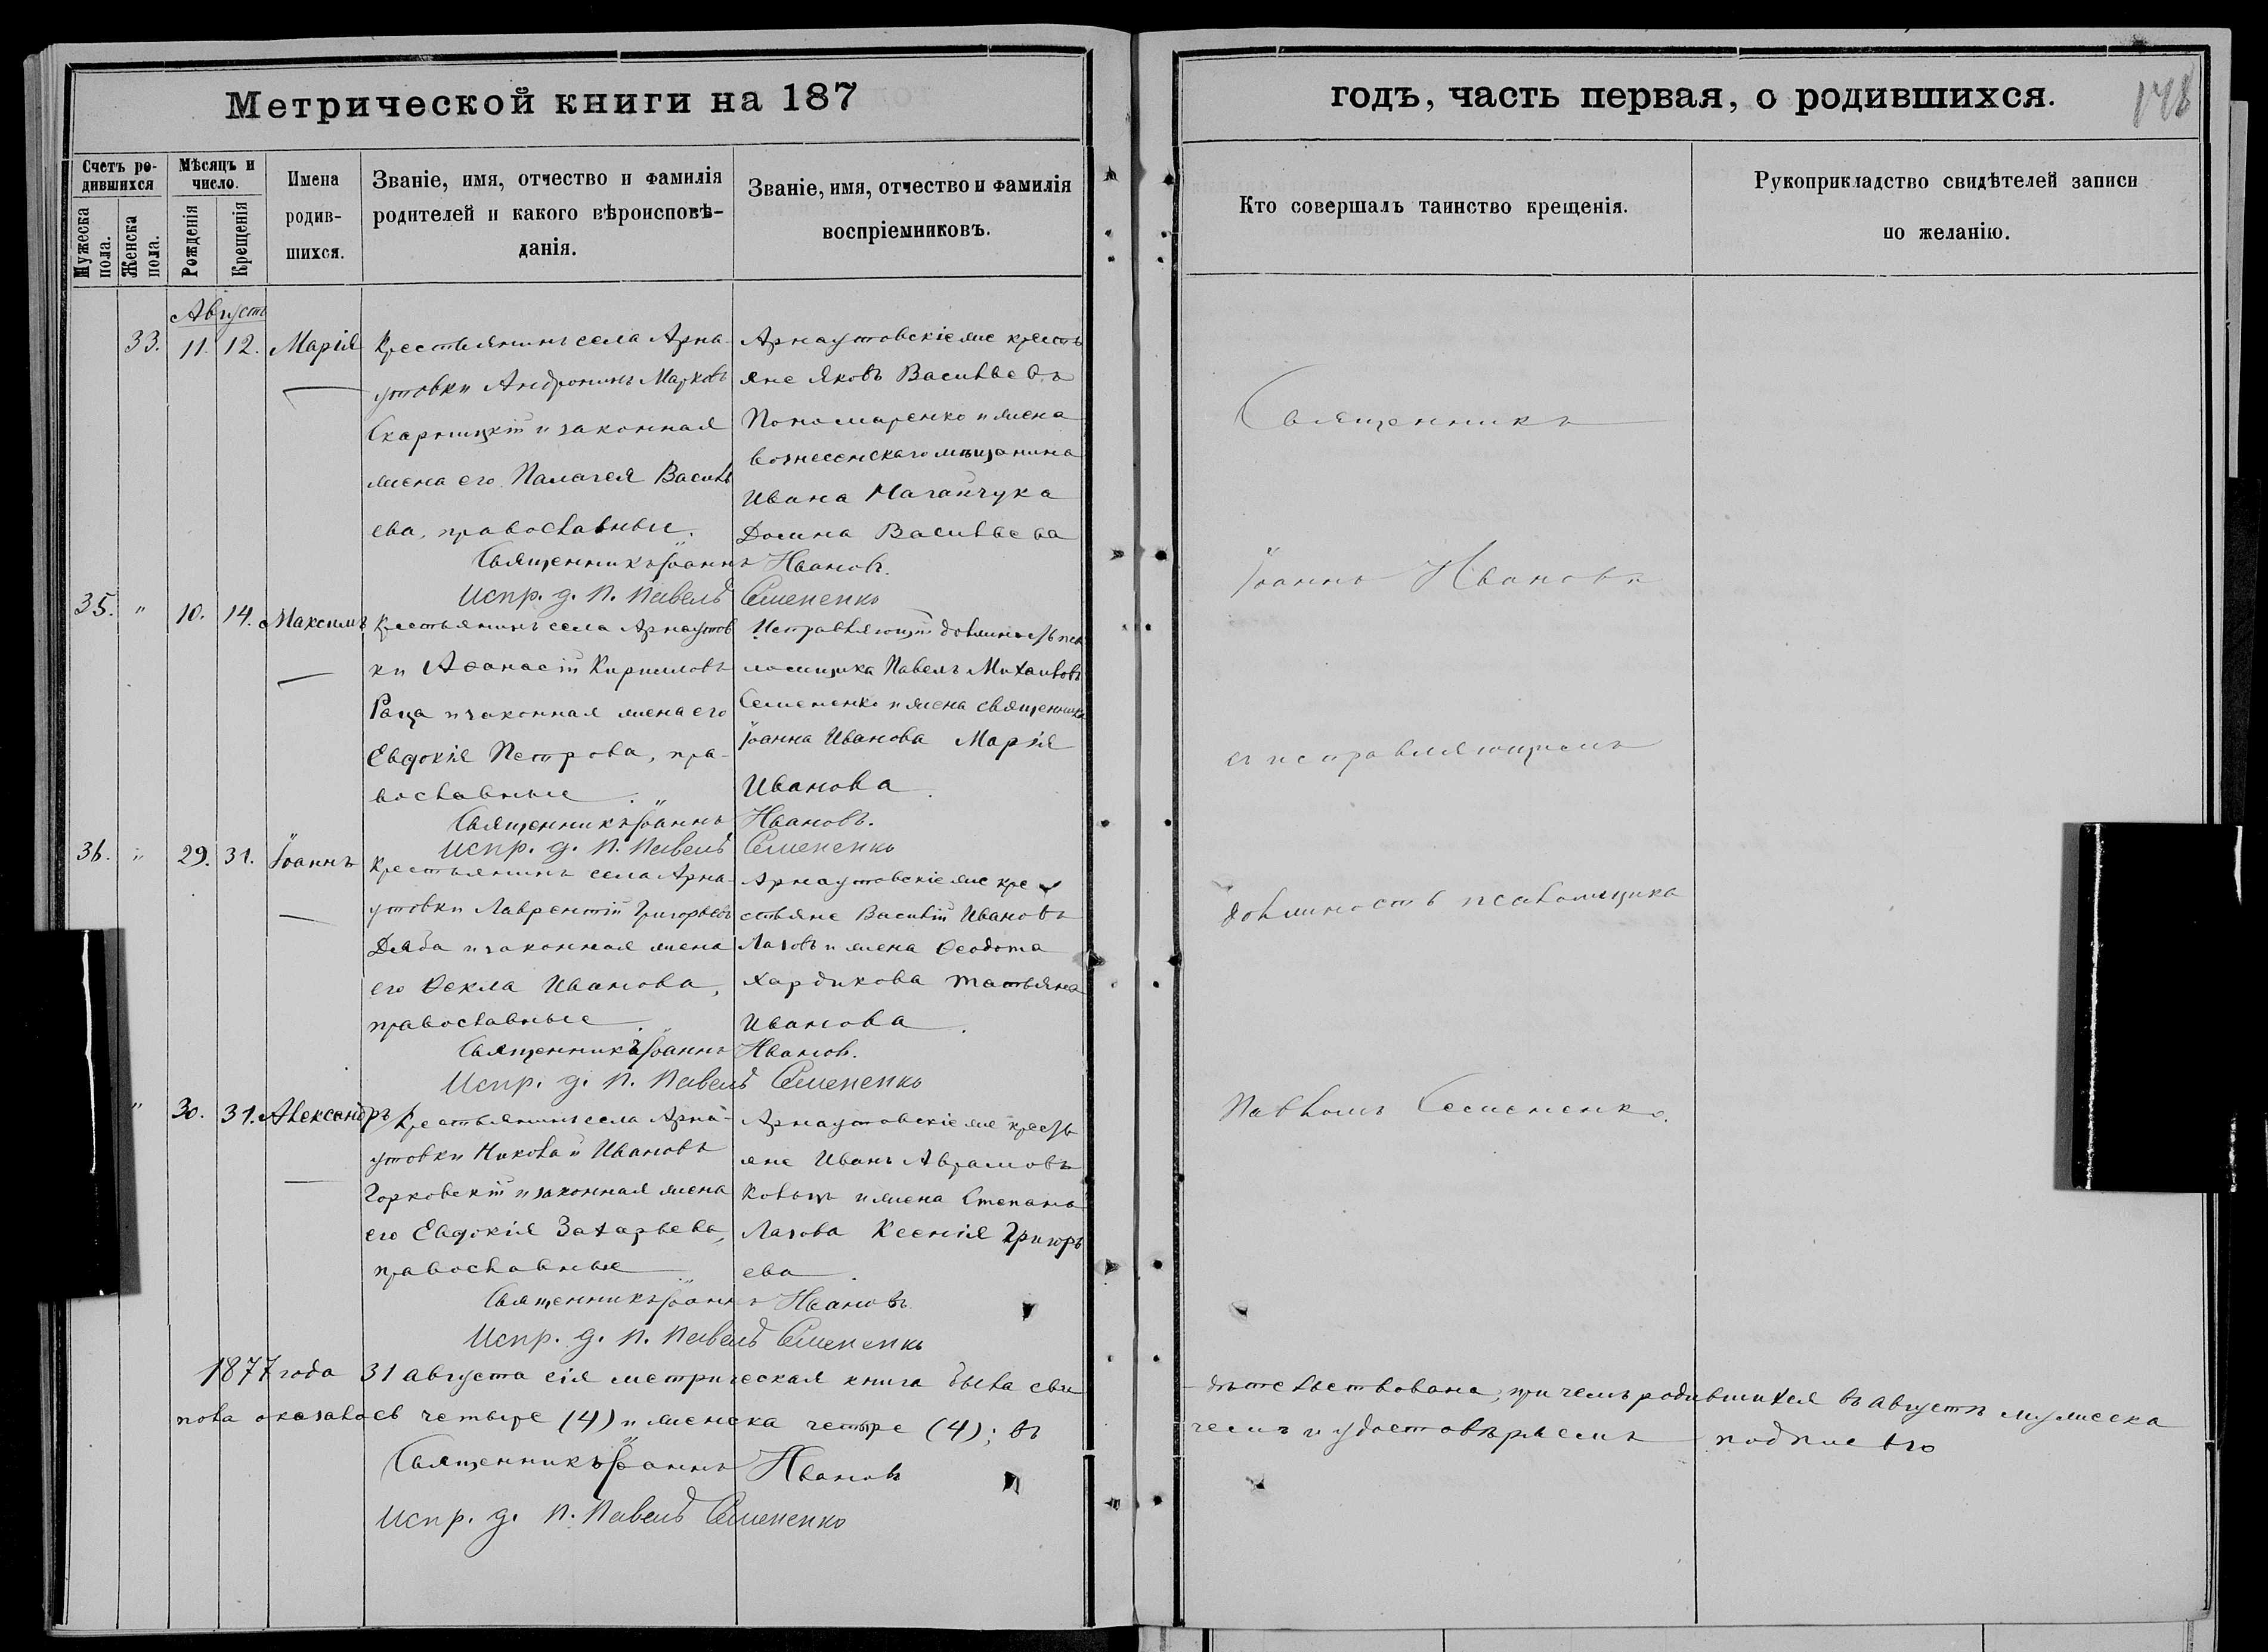 Метрической книги на 187
годъ, часть первая, о родившихся.
148
Счетъ ро-
дившихся
Мужеска пола.
Женска пола.
Мѣсяцъ и
число.
Рожденія
Крещенія
Имена
родив-
шихся.
Званіе, имя, отчество и фамилія
родителей и какого вѣроисповѣ-
данія.
Званіе, имя, отчество и фамилія
воспріемниковъ.
Кто совершалъ таинство крещенія.
Рукоприкладство свидѣтелей записи
по желанію.
Августъ
33. 11. 12. Марія
Крестьянинъ села Арна-
утовки Андроникъ Марковъ
и законная
жена его Палагея Василь
ева, православные.
Арнаутовскіе же кресть
яне Яковъ Васильевъ
Пономаренко и жена
вознесенскаго мѣщанина
Ивана Маганчука
Домна Васильева
Священникъ Іоаннъ Ивановъ.
Испр. д. п. Павелъ Семененко
35. " 10. 14. Максимъ
Крестьянинъ села Арнаутов
ки Аѳанасій Кирилловъ
Раца и законная жена его
Евдокія Петрова, пра-
вославные.
Исправляющій должность пса
ломщика Павелъ Михаиловъ
Семененко и жена священника
Іоанна Иванова Марія
Иванова.
Священникъ Іоаннъ Ивановъ.
Испр. д. п. Павелъ Семененко
36. " 29. 31. Іоаннъ
Крестьянинъ села Арна-
утовки Лаврентій Григорьевъ
Дзяба и законная жена
его Ѳекла Иванова,
православные.
Арнаутовскіе же кре
стьяне Василій Ивановъ
Лазовъ и жена Ѳеодота
Хардикова Татьяна
Иванова.
Священникъ Іоаннъ Ивановъ.
Испр. д. п. Павелъ Семененко
" 30. 31. Александръ
Крестьянинъ села Арна-
утовки Николай Ивановъ
Горковскій и законная жена
его Евдокія Захарьева,
православные
Арнаутовскіе же кресть
яне Иванъ Аврамовъ
и жена Степана
Лазова Ксенія Григорь
ева.
Священникъ Іоаннъ Ивановъ
Испр. д. п. Павелъ Семененко
Священникъ
Іоаннъ Ивановъ
съ исправляющимъ
должность псаломщика
Павломъ Семененко.
1877 года 31 августа сія метрическая книга была сви
дѣтельствована, при чемъ родившихся въ августѣ мужеска
пола оказалось четыре (4) и женска четыре (4); въ
чемъ и удостовѣряемъ подписью
Священникъ Іоаннъ Ивановъ
Испр. д. п. Павелъ Семененко